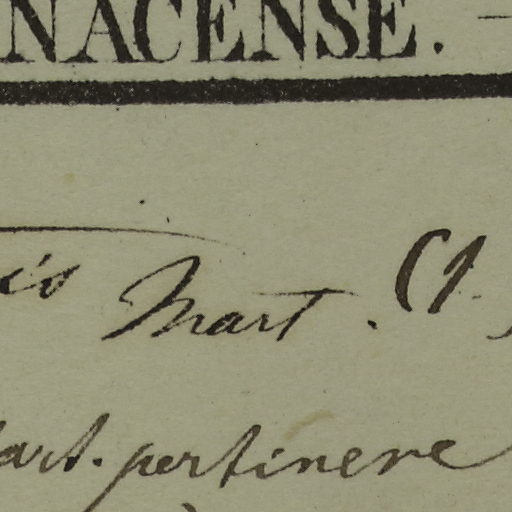 NACENSE. —
is Mart. (1.
art. pertinere